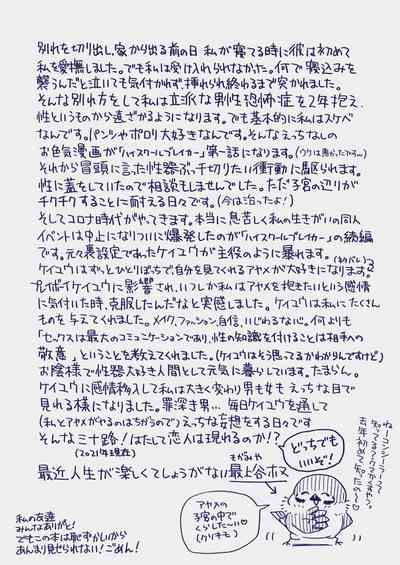 別れを切り出し、家から出る前の日 私が寝てる時に彼は初めて
私を愛撫しました。でも私は受け入れられなかった。何で寝込みを
襲うんだと泣いても気付かれず、挿れられ終わるまで突かれました。
そんな別れ方をして私は立派な男性恐怖症を2年抱え、
性というものから遠ざかるようになります。でも基本的に私はスケベ
なんです。(パンシやポロリ大好きなんです。そんなえっちなしの
お色気漫画が「ハイスクールブレイカー」第一話になります。
それから冒頭に言った性器ぶっ千切りたい衝動に駆られます。
性に蓋をしていたので相談もしませんでした。ただ子宮の辺りが
チクチクすることに耐える日々です。(今は治ったよ!)
そしてコロナ時代がやってきます。本当に息苦しく私の生きがいの同人
イベントは中止になりついに爆発したのが「ハイスクールブレイカー」の続編
です。元々裏設定であったケイユウが主役のように暴れます。
ケイユウはずっとひとりぼっちで自分を見てくれるアヤメが大好きになります。
プレイボーイケイユウに影響され、いつしか私はアヤメを抱きたいという感情
に気付いた時、克服したんだなと実感しました。ケイユウは私にたくさん
ものを与えてくれました。メイク、ファッション、自信、いじれるな心。何よりも
「セックスは最大のコミュニケーションであり、性の知識を付けることは相手への
敬意」ということを教えてくれました。(ケイユウはそう思ってるかわからんですけど)
お陰様で性器大好き人間として元気に暮らしています。たまらん。
ケイユウに感情移入して私は大きく変わり男も女もえっちな目で
見れる様になりました。罪深き男… 毎日ケイユウを通して
(私とアヤメがやるのはちがうので)えっちな妄想をする日々です
そんな三十路!はたして恋人は現れるのか!?
(2021年現在)
最近人生が楽しくてしょうがない最上谷ホス
どっちでもいいぞ!
ねーコンシーラーって
知ってる?クマかくすやつ。
去年初めて知ったの〜♡
アヤメの
子宮の中で
くらした〜い♡
(クソキモ)
私の友達
みんなありがと!
でもこの本は恥ずかしいから
あんまり見せられない!ごめん!